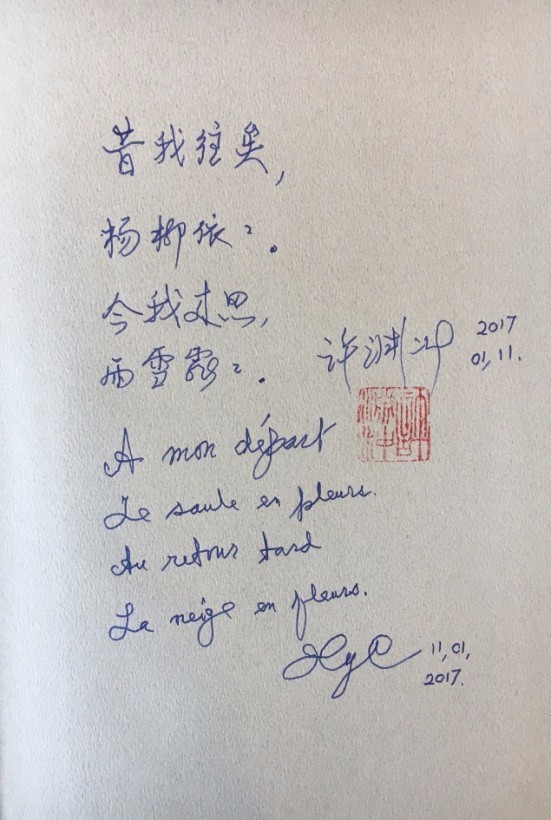 昔我往矣,
杨柳依〻.
今我来思,
雨雪霏〻.
许渊冲
2017
01,11.
A mon départ
Le saule en pleurs.
Au retour tard
La neige en fleurs.
XyC
11,01,
2017.